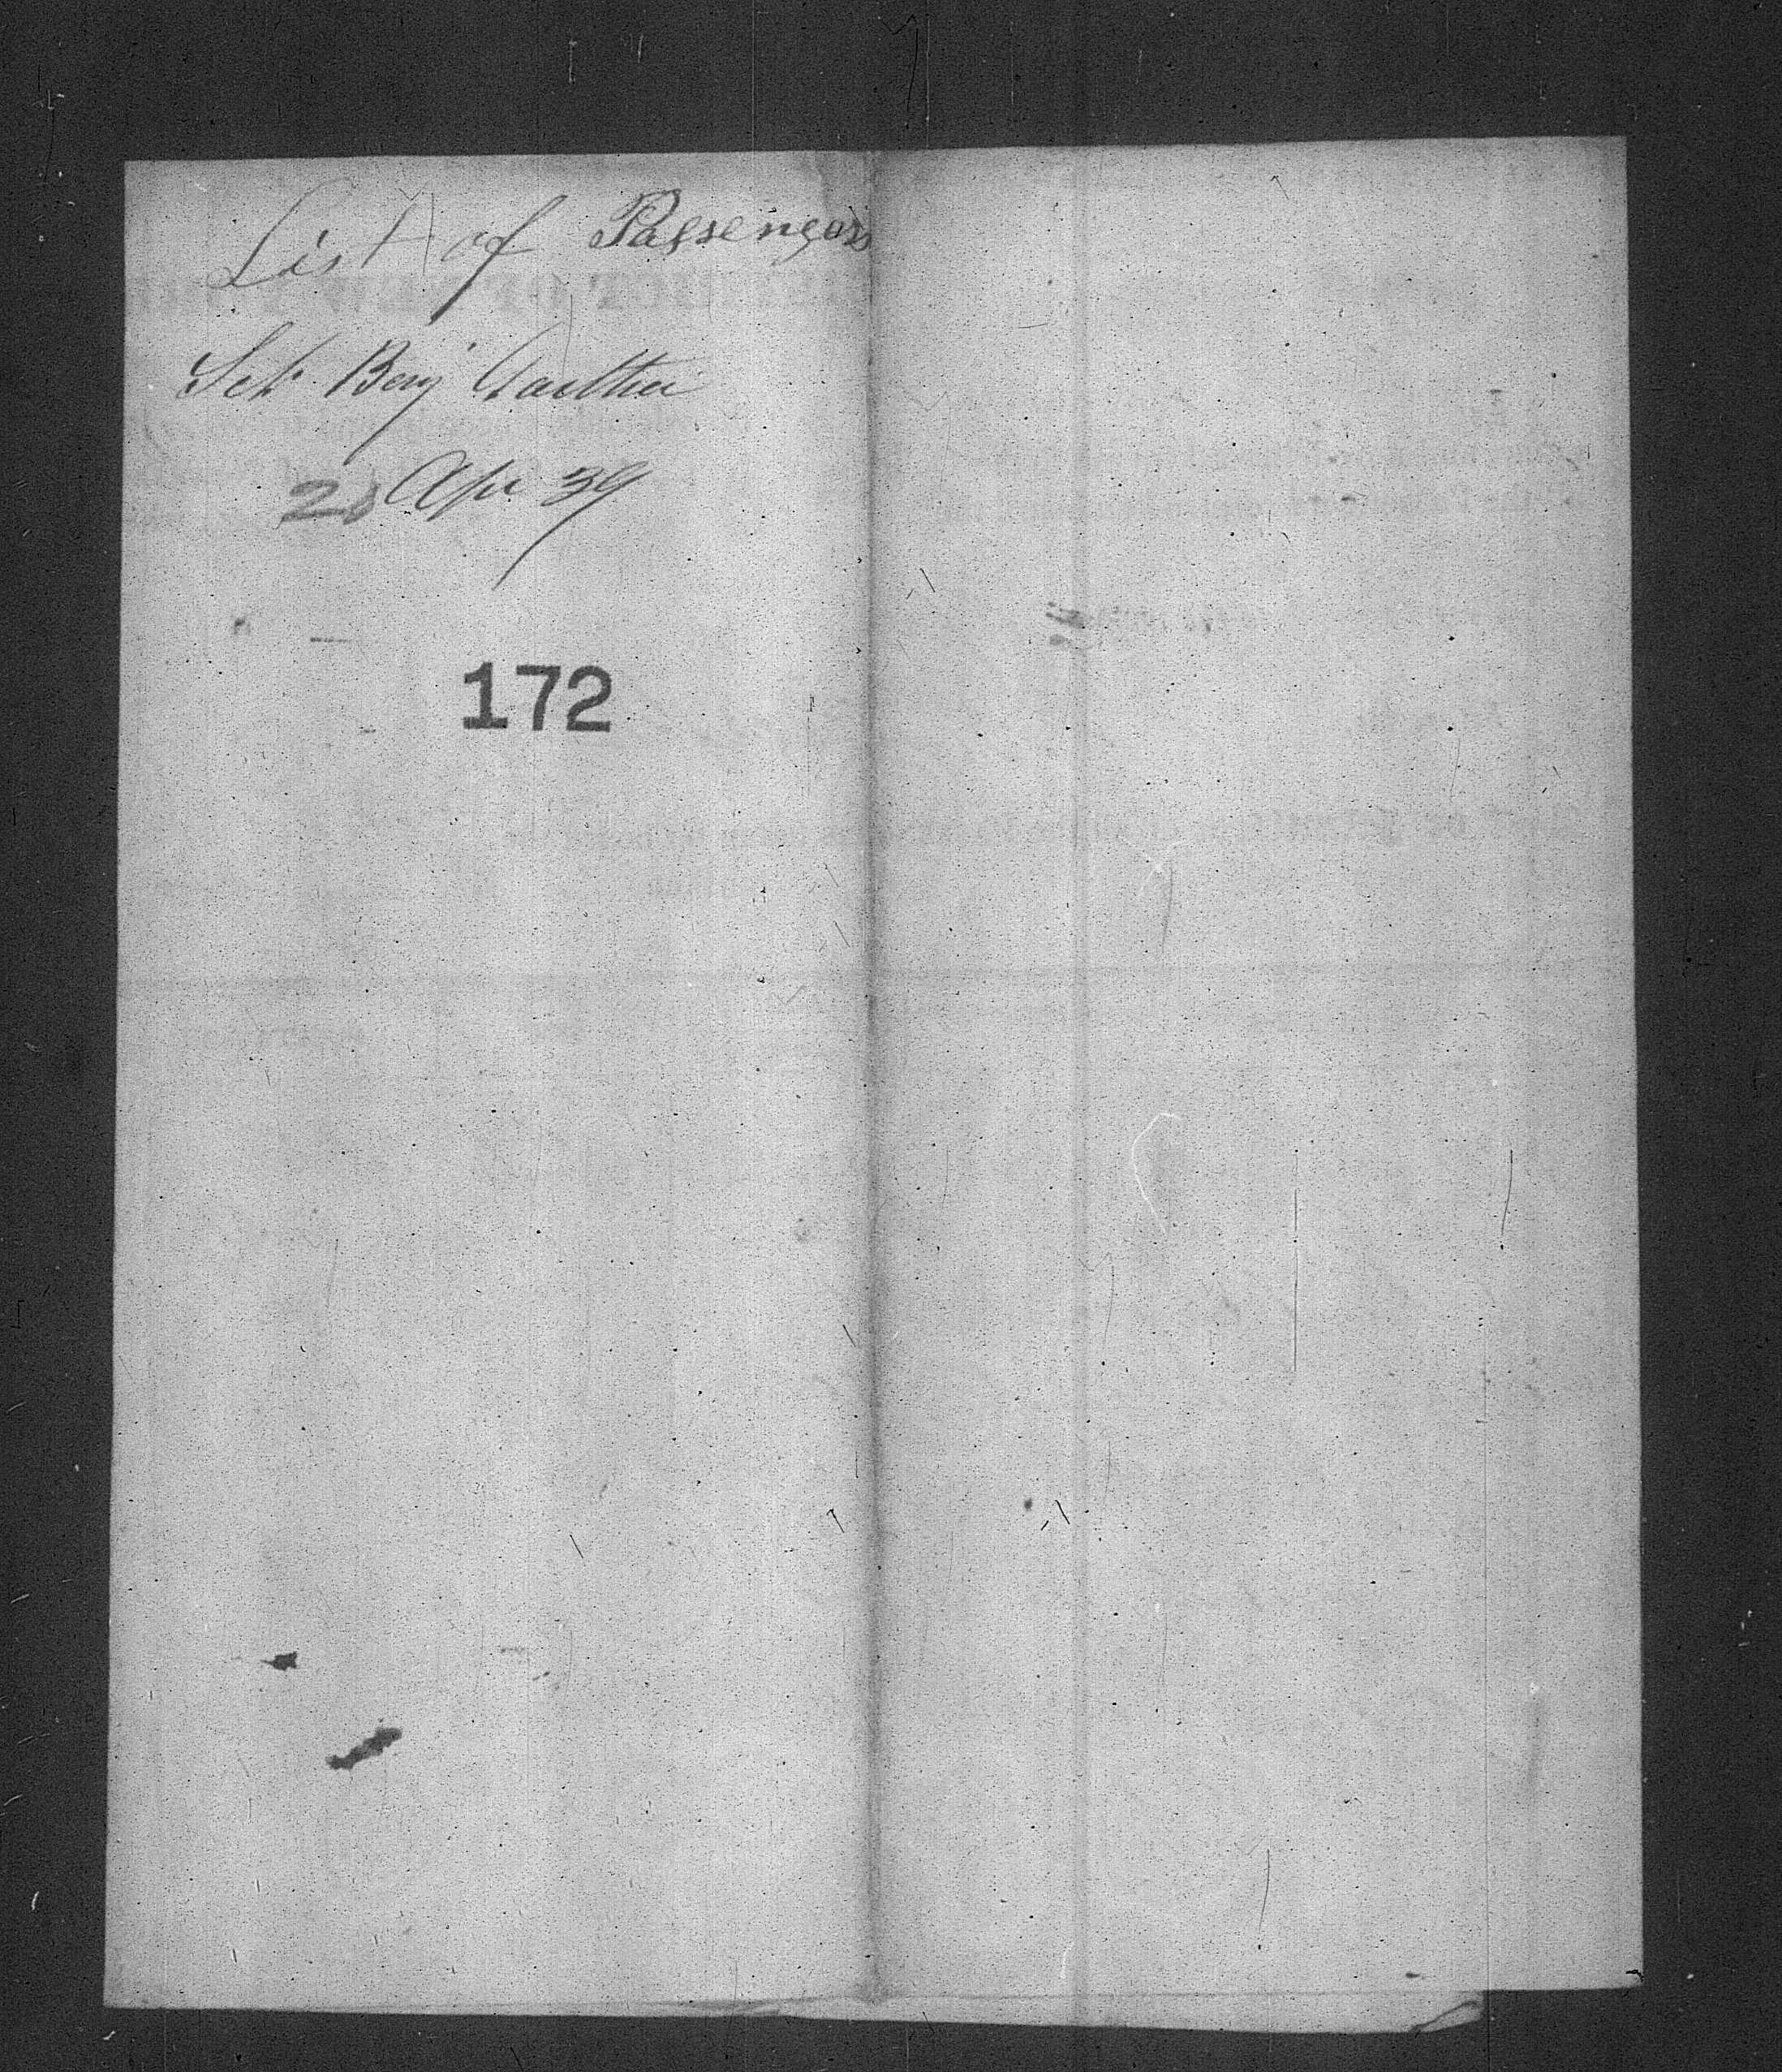 List of Passengers
Schr Benj Gaither
Apr 39
172